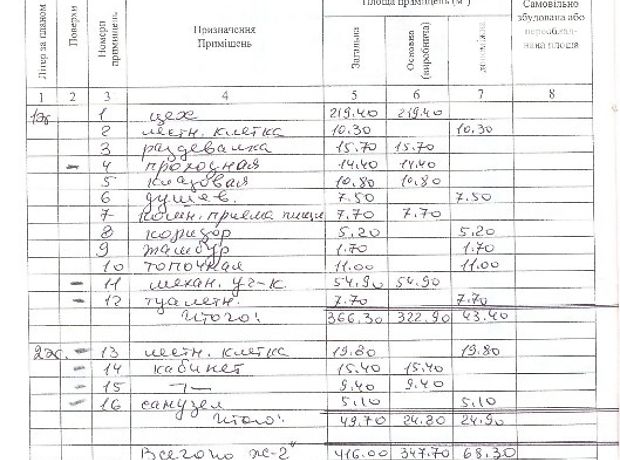 Площа приміщень (м²)
Літер за планом Поверхи Номери приміщень. Призначення Приміщень Загальна Основна (виробнича) допоміжна Самовільно збудована або переоблад- нана площа
1 2 3 4 5 6 7 8
1эт. 1 цех 219.40 219.40
2 лестн. клетка 10.30 10.30
3 раздевалка 15.70 15.70
– 4 проходная 14.40 14.40
5 кладовая 10.80 10.80
6 душев. 7.50 7.50
7 комн. приема пищи 7.70 7.70
8 коридор 5.20 5.20
9 тамбур 1.70 1.70
10 топочная 11.00 11.00
– 11 механ. уч-к. 54.90 54.90
– 12 туалетн. 7.70 7.70
Итого: 366.30 322.90 43.40
2эт. – 13 лестн. клетка 19.80 19.80
– 14 кабинет 15.40 15.40
– 15 –"– 9.40 9.40
– 16 санузел 5.10 5.10
Итого: 49.70 24.80 24.90
Всего по 416.00 347.70 68.30